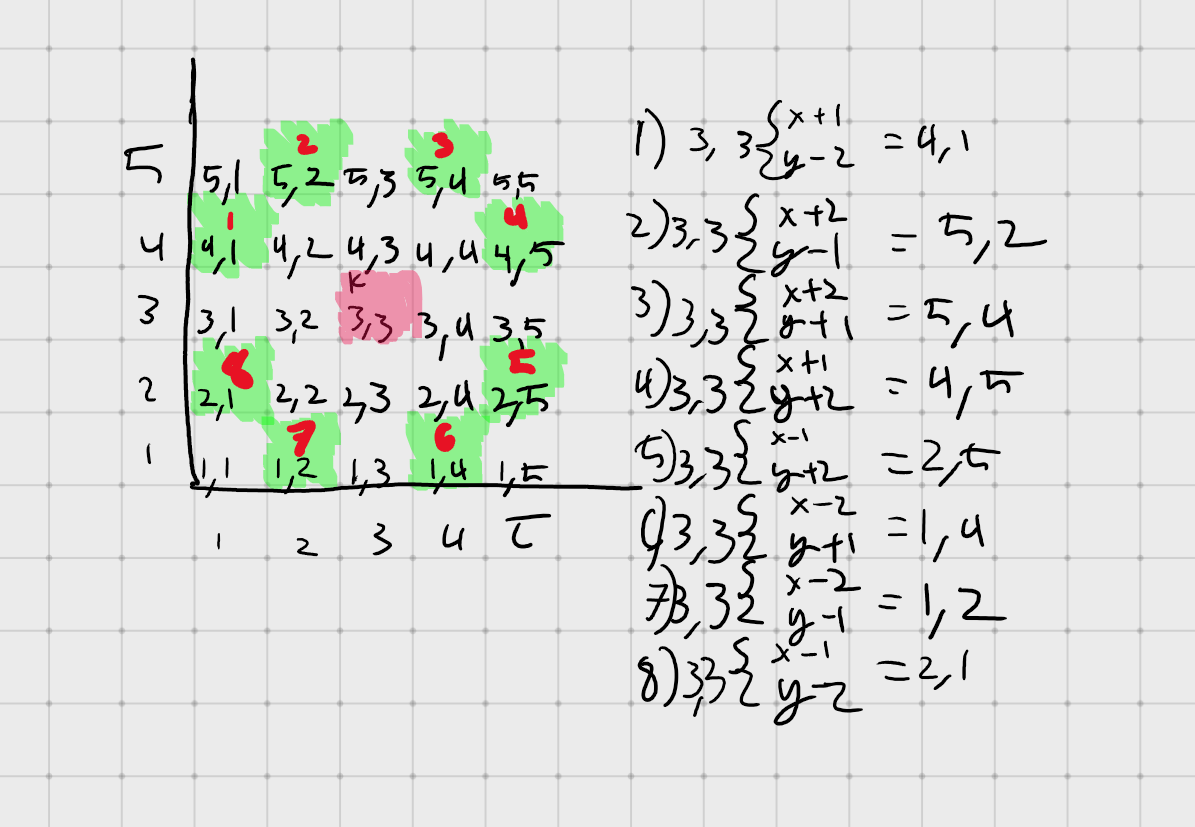 2 3
5 5,1 5,2 5,3 5,4 5,5
1 4
4 4,1 4,2 4,3 4,4 4,5
K
3 3,1 3,2 3,3 3,4 3,5
8 5
2 2,1 2,2 2,3 2,4 2,5
7 6
1 1,1 1,2 1,3 1,4 1,5
1 2 3 4 5
1) 3,3 { x+1
y-2 = 4,1
2) 3,3 { x+2
y-1 = 5,2
3) 3,3 { x+2
y+1 = 5,4
4) 3,3 { x+1
y+2 = 4,5
5) 3,3 { x-1
y+2 = 2,5
6) 3,3 { x-2
y+1 = 1,4
7) 3,3 { x-2
y-1 = 1,2
8) 3,3 { x-1
y-2 = 2,1